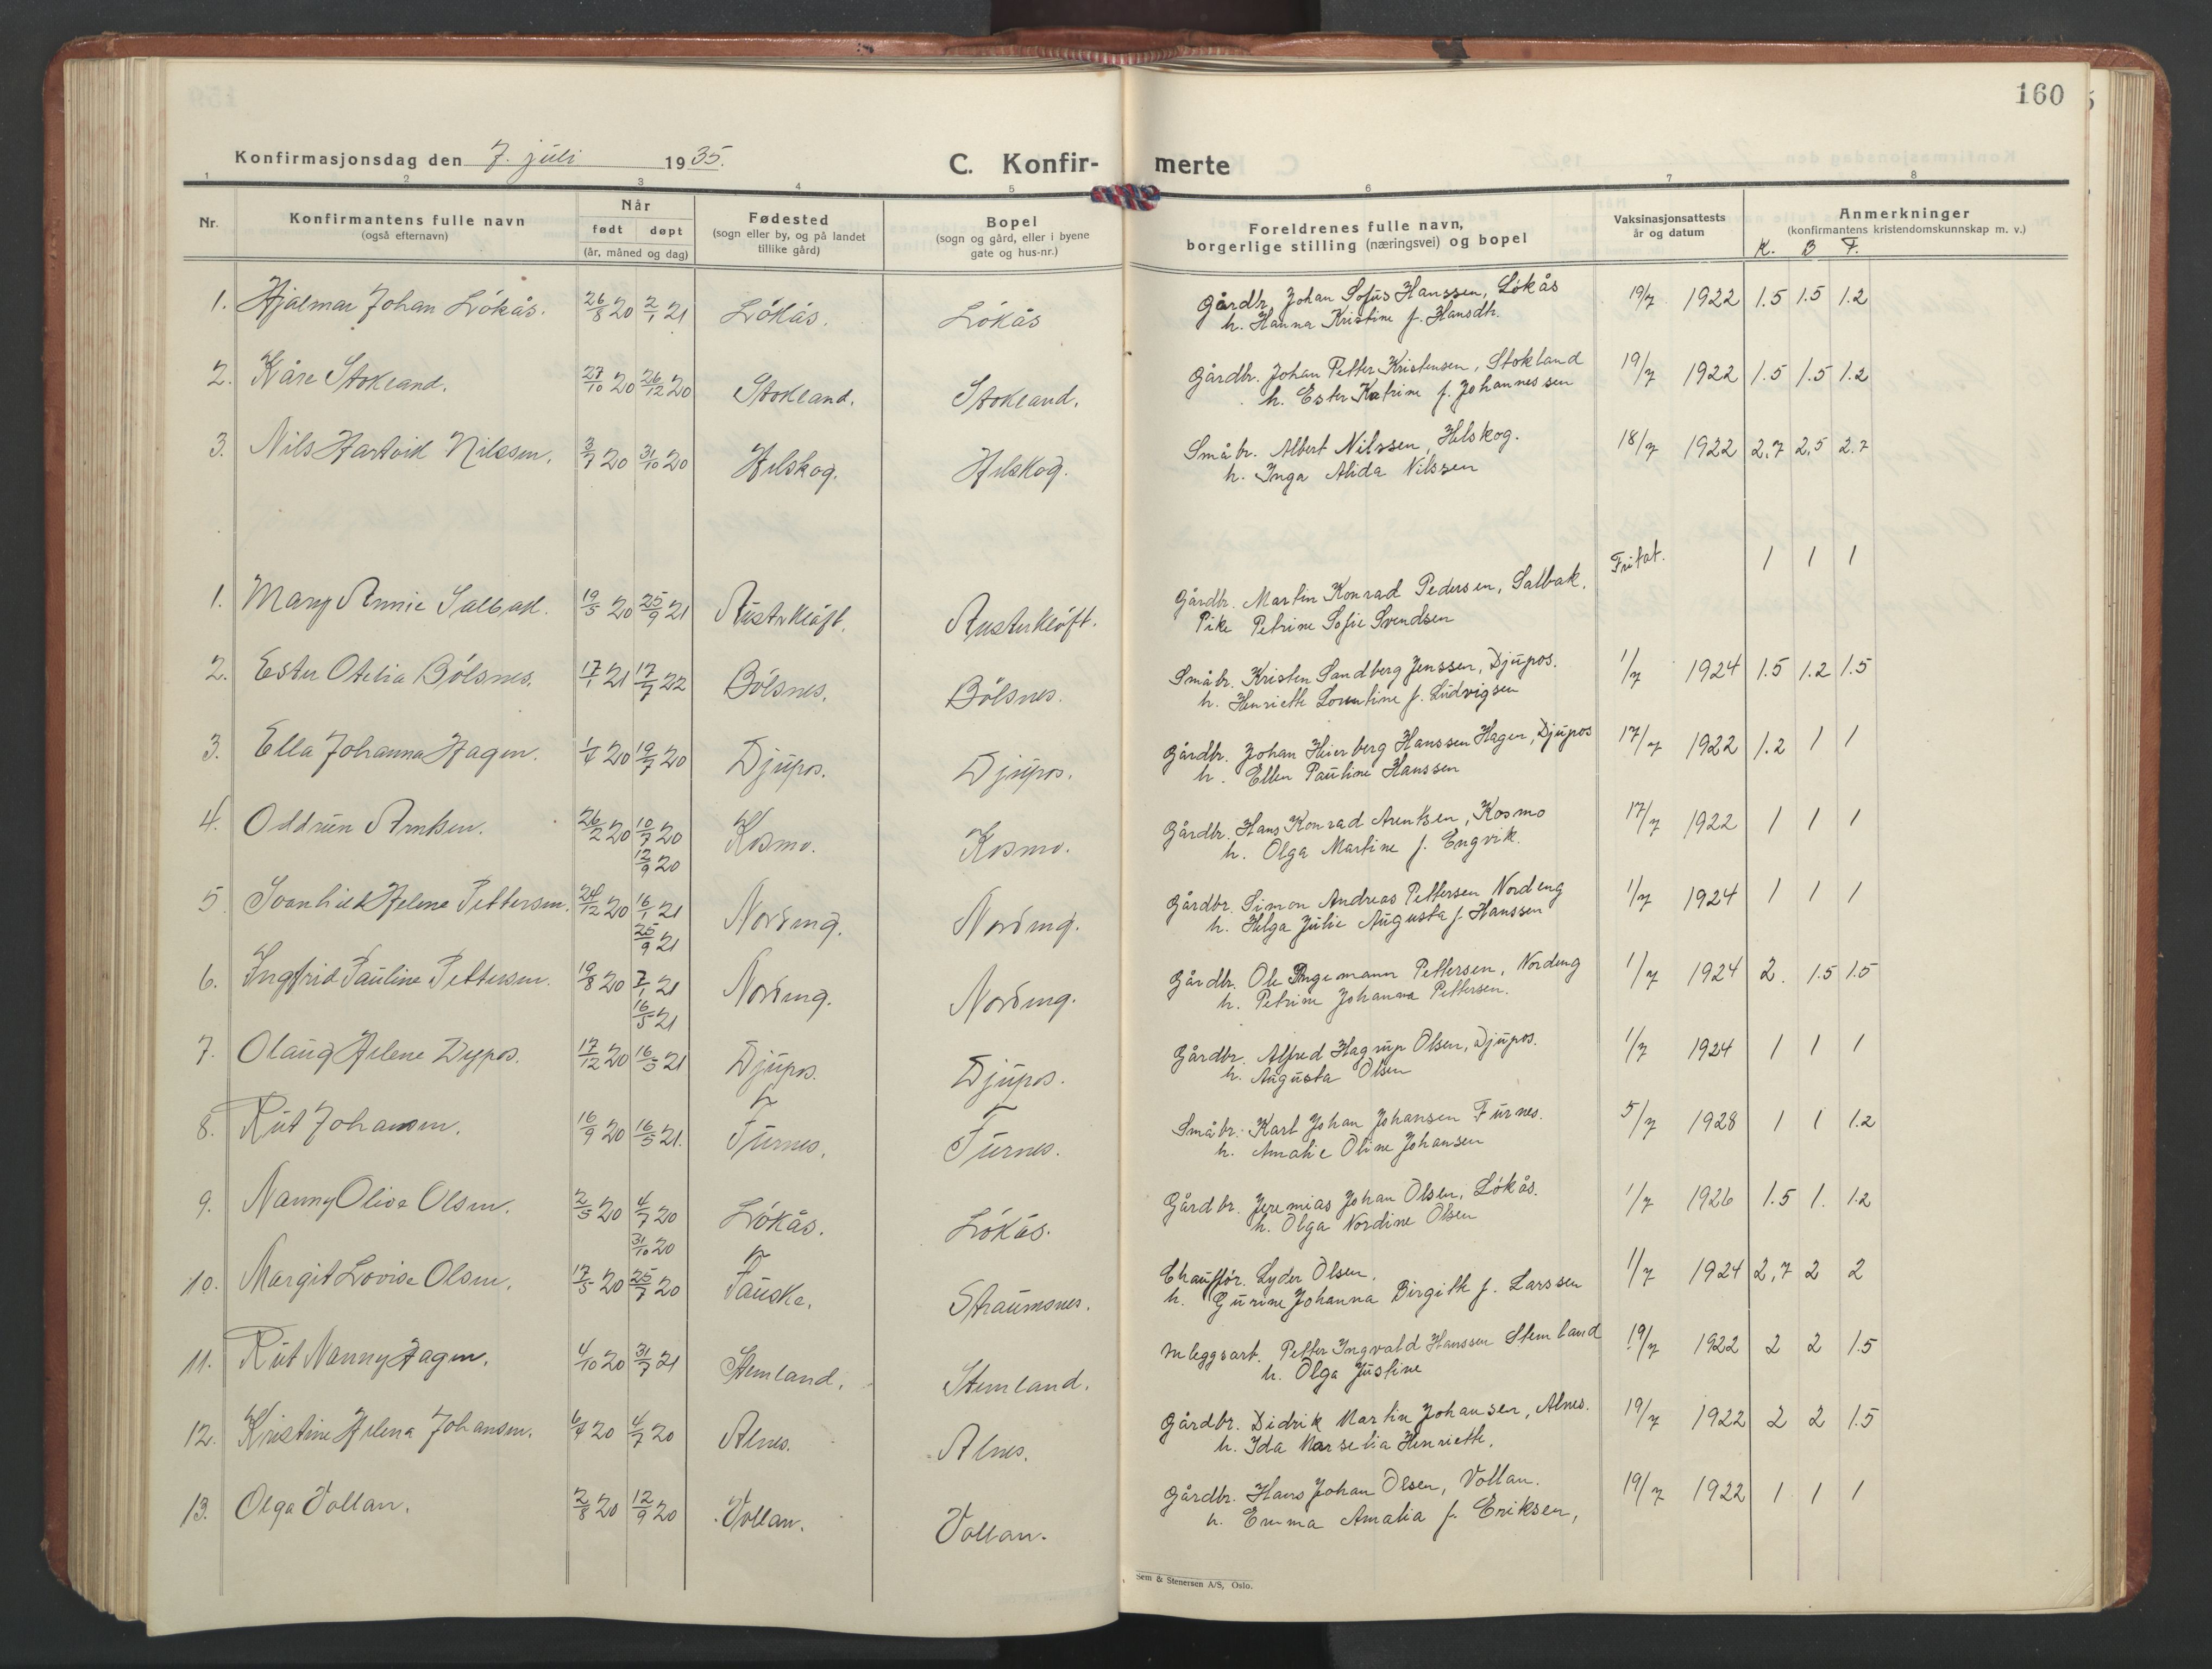 160
Konfirmasjonsdag den 7. juli 1935.
C. Konfir- merte
1 2 3 4 5 6 7 8
Nr.
Konfirmantens fulle navn
(også efternavn)
Når
født døpt
(år, måned og dag)
Fødested
(sogn eller by, og på landet
tillike gård)
Bopel
(sogn og gård, eller i byene
gate og hus-nr.)
Foreldrenes fulle navn,
borgerlige stilling (næringsvei) og bopel
Vaksinasjonsattests
år og datum
Anmerkninger
(konfirmantens kristendomskunnskap m. v.)
K. B F.
1. Hjalmar Johan Løkås. 26/8 20 2/1 21 Løkås. Løkås Gårdbr. Johan Sofus Hanssen, Løkås 19/7 1922 1.5 1.5 1.2
h. Hanna Kristine f. Hansdtr.
2. Kåre Stokland. 27/10 20 26/12 20 Stokland. Stokland. Gårdbr. Johan Petter Kristensen, Stokland 19/7 1922 1.5 1.5 1.2
h. Ester Katrine f. Johannessen
3. Nils Hartvik Nilssen. 3/7 20 31/10 20 Helskog. Helskog. Småbr. Albert Nilssen, Helskog. 18/7 1922 2,7 2,5 2.7
h. Inga Alida Nilssen
1. Mary Annie Salbak. 19/5 20 25/9 21 Austerkløft. Austerkløft. Gårdbr. Martin Konrad Pedersen, Salbak. Fritat. 1 1 1
Pike Petrine Sofie Svendsen
2. Ester Otelia Bólsnes. 17/1 21 17/7 22 Bólsnes. Bólsnes. Småbr. Kristen Sandberg Jenssen, Djupos. 1/7 1924 1.5 1.2 1.5
h. Henriette Lorentine f. Ludvigsen
3. Ella Johanna Hagen. 1/4 20 19/7 20 Djupos. Djupos. Gårdbr. Johan Heierberg Hanssen Hagen, Djupos 17/7 1922 1.2 1 1
h. Ellen Pauline Hanssen
4. Oddrun Arntsen. 26/2 20 10/7 20 Kosmo. Kosmo. Gårdbr. Hans Konrad Arentsen, Kosmo 17/7 1922 1 1 1
12/9 20 h. Olga Martine f. Engvik.
5. Svanhild Helene Pettersen. 24/12 20 16/1 21 Nordeng. Nordeng. Gårdbr. Simon Andreas Pettersen Nordeng 1/7 1924 1 1 1
25/9 21 h. Helga Julie Augusta f. Hanssen
6. Ingfrid Pauline Pettersen. 19/8 20 2/1 21 Nordeng. Nordeng. Gårdbr. Ole Ingemann Pettersen, Nordeng 1/7 1924 2. 1.5 1.5
16/5 21 h. Petrine Johanna Pettersen.
7. Olaug Helene Dypos. 17/12 20 16/5 21 Djupos. Djupos. Gårdbr. Alfred Hagrup Olsen, Djupos. 1/7 1924 1 1 1
h. Augusta Olsen
8. Rut Johansen. 16/9 20 16/5 21. Furnes. Furnes. Småbr. Karl Johan Johansen Furnes. 5/7 1928 1 1 1.2
h. Amalie Oline Johansen
9. Nanny Oliva Olsen. 2/5 20 4/7 20 Løkås. Løkås. Gårdbr. Jeremias Johan Olsen, Løkås. 1/7 1926 1.5 1. 1.2
31/10 20 h. Olga Nordine Olsen
10. Margit Lovise Olsen. 17/5 20 25/7 20 Fauske. Straumsnes. Chauffør. Lyder Olsen. 1/7 1924 2,7 2 2
h. Gurine Johanna Birgith f. Larssen
11. Rut Nanny Hagen. 4/10 20 31/7 21 Stemland. Stemland. Petter Ingvald Hanssen Stemland 19/7 1922 2 2 1.5
h. Olga Justine
12. Kristine Helena Johansen. 6/4 20 4/7 20 Alnes. Alnes. Gårdbr. Didrik Martin Johansen, Alnes. 19/7 1922 2 2 1.5
h. Ida Marselia Henriette.
13. Olga Vollan. 2/8 20 12/9 20 Vollan. Vollan. Gårdbr. Hans Johan Olsen, Vollan. 19/7 1922 1 1 1
h. Emma Amalia f. Eriksen,
Sem & Stenersen A/S, Oslo.